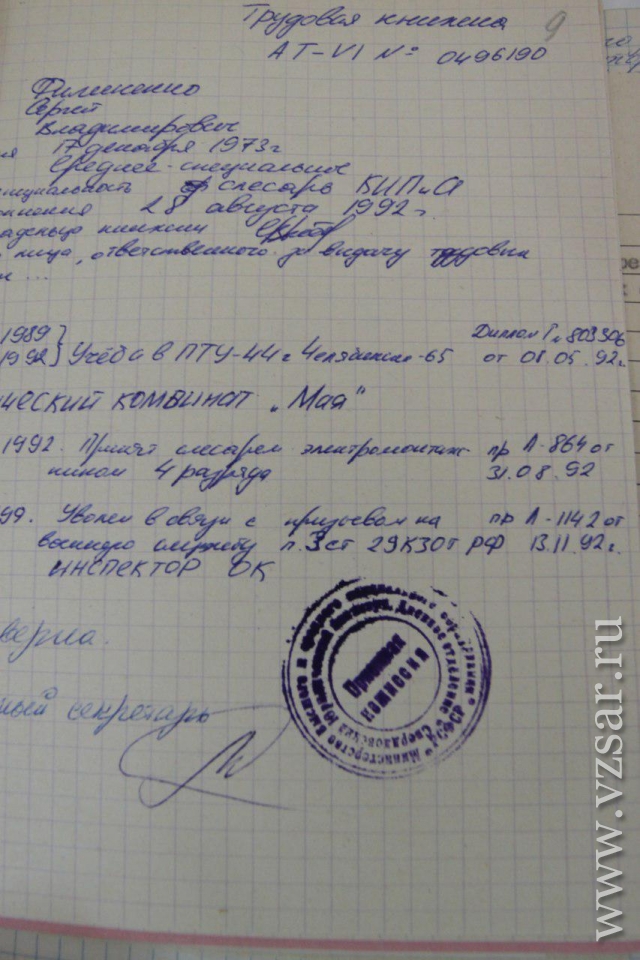 Трудовая книжка
9
АТ-VI № 0496190
Филиненко
Сергей
Владимирович
ия 17 декабря 1973г
Среднее-специальное
специальность слесарь КИПиА
олнения 28 августа 1992г.
ладельца книжки
лица, ответственного за выдачу трудовых
к ...
1989}
1992} Учёба в ПТУ-44 г. Челябинск-65
Диплом Г № 803306
от 08.05.92г.
ический комбинат „Маяк"
1992. Принят слесарем электромонтаж-
ником 4 разряда
пр Л-864 от
31.08.92
99. Уволен в связи с призывом на
военную службу п.3 ст 29 КЗОТ РФ
пр Л-1142 от
13.11.92г.
ИНСПЕКТОР ОК
верна.
ный секретарь
Министерство высшего и среднего специального образования РСФСР
Свердловский юридический институт. Дневное отделение
Приемная
комиссия
www.vzsar.ru